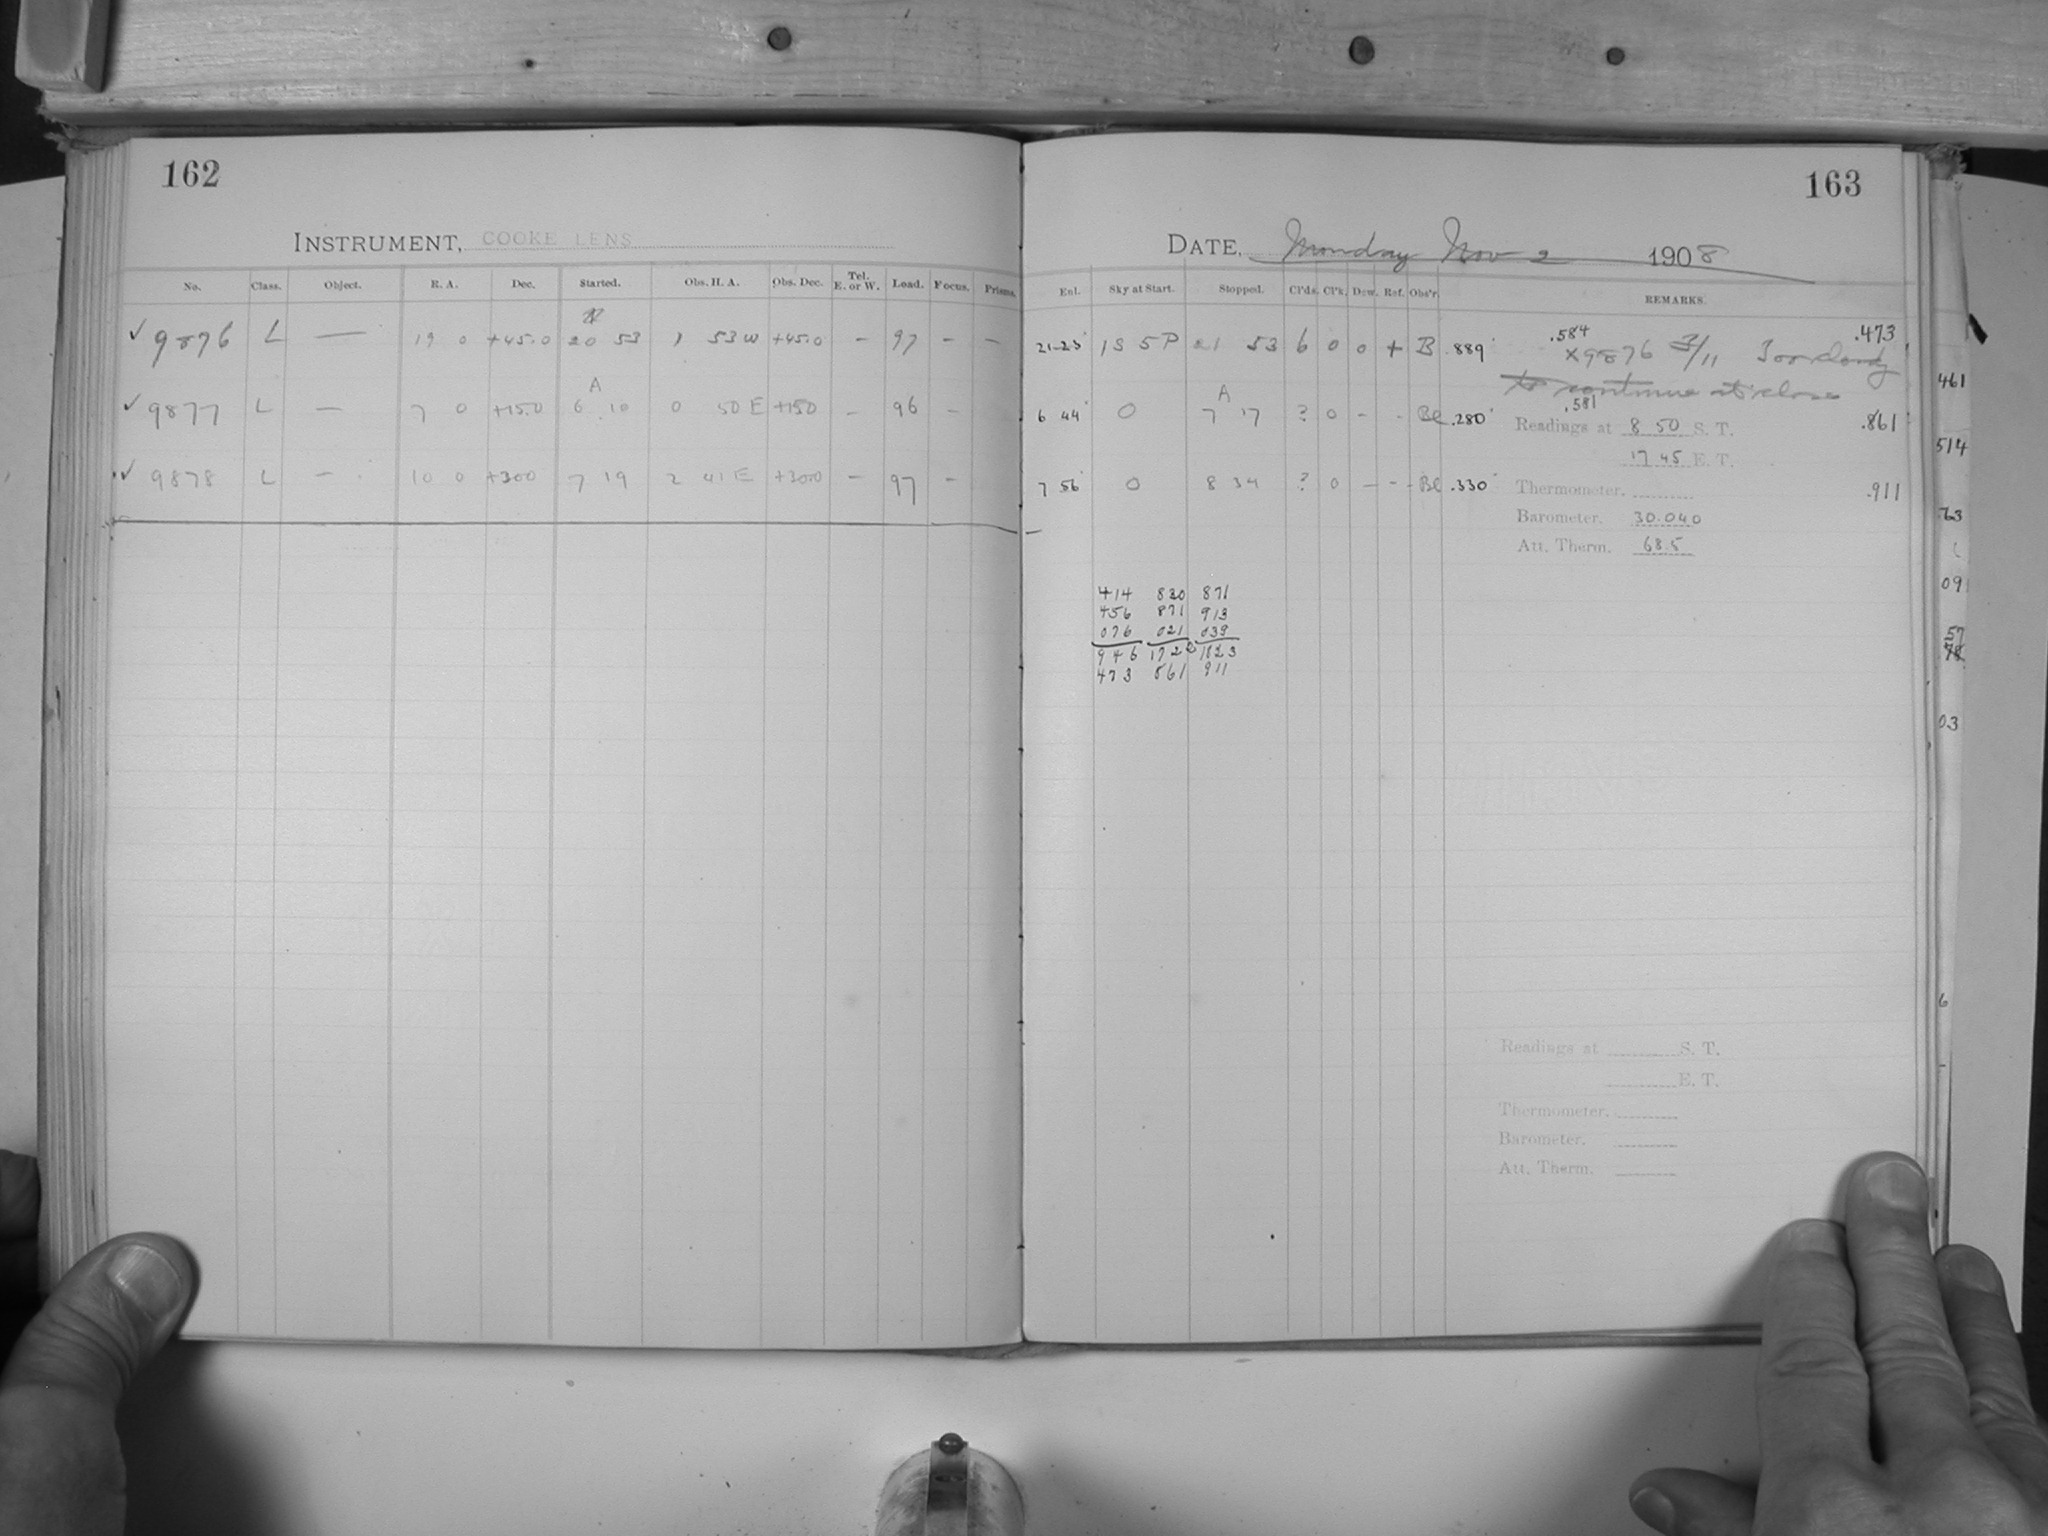 162
INSTRUMENT, COOKE LENS
No. Class. Object. R. A. Dec. Started. Obs. H. A. Obs. Dec. Tel. E. or W. Load. Focus. Prisms.
✓ 9876 L — 19 0 +45.0 20 53 1 53 W +45.0 — 97 — —
A
✓ 9877 L — 7 0 +15.0 6 10 0 50 E +15.0 — 96 —
✓ 9878 L — 10 0 +30.0 7 19 2 41 E +30.0 — 97 —
163
DATE, Monday Nov 2 1908
Ent. Sky at Start. Stopped. Cl'ds. Cl'k. Dew. Ref. Obs'r. REMARKS.
.584 .473
21-23 1S 5P 21 53 6 0 0 + B .889 ×9876 3/11 Too cloudy
to continue at close
A .581
6 44 0 7 17 ? 0 - - Bl .280 Readings at 8 50 S. T. .861
17 45 E. T.
7 56 0 8 34 ? 0 - - Bl .330 Thermometer. .911
Barometer. 30.040
Att. Therm. 68.5
414 830 871
456 871 913
076 021 039
946 1722 1823
473 861 911
Readings at S. T.
E. T.
Thermometer.
Barometer.
Att. Therm.
461
514
73
09
57
78
03
6